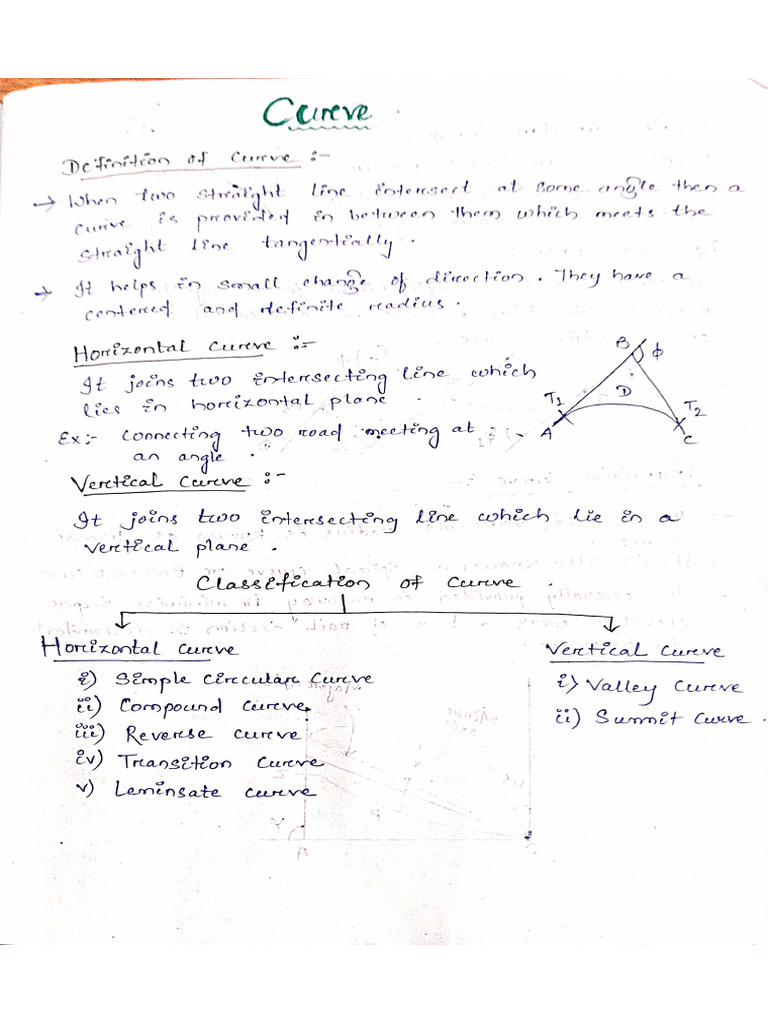 Curve
Definition of Curve :-
→ When two straight line intersect at some angle then a
curve is provided in between them which meets the
straight line tangentially.
→ It helps in small change of direction. They have a
centered and definite radius.
Horizontal curve :-
It joins two intersecting line which
lies in horizontal plane.
Ex:- Connecting two road meeting at
an angle.
B ϕ
D
T1 T2
A C
Vertical Curve :-
It joins two intersecting line which lie in a
vertical plane.
Classification of Curve.
Horizontal curve
i) Simple circular Curve
ii) Compound curve.
iii) Reverse curve
iv) Transition Curve
v) Leminsate curve
Vertical Curve
i) Valley Curve
ii) Summit Curve.